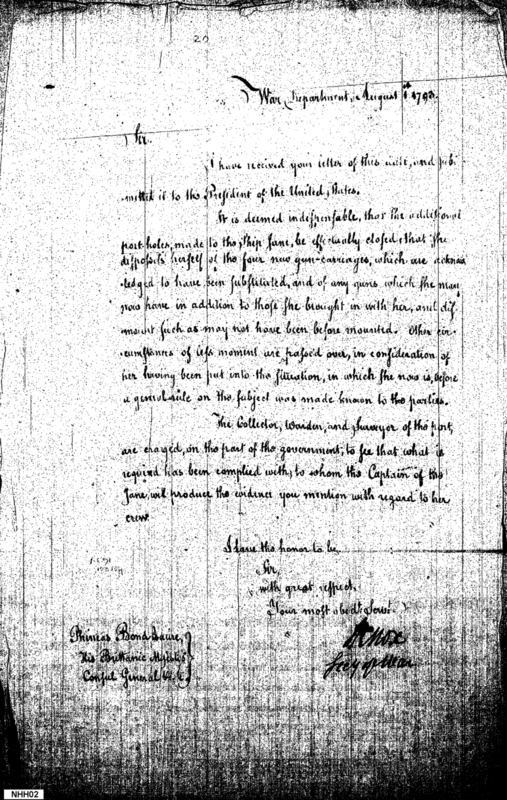 20
War Department, August 1st 1793.
Sir.
I have received your letter of this date, and sub-
mitted it to the President of the United States.
It is deemed indispensable, that the additional
port-holes, made to the Ship Jane, be effectually closed; that she
disposses herself of the four new gun-carriages, which are acknow
ledged to have been substituted, and of any guns which she may
now have in addition to those she brought in with her, and dis-
mount such as may not have been before mounted. Other cir-
cumstances of less moment are passed over, in consideration of
her having been put into the situation, in which she now is, before
a general rule on the subject was made known to the parties.
The Collector, Warden, and Surveyor of the port,
are charged, on the part of the government, to see that what is
required has been complied with; to whom the Captain of the
Jane, will produce the evidence you mention with regard to her
crew.
I have the honor to be,
Sir,
with great respect,
Your most obedt. Servt.
HKnox
Secy of War
Phineas Bond
His Brittanic
Consul General
NHH02